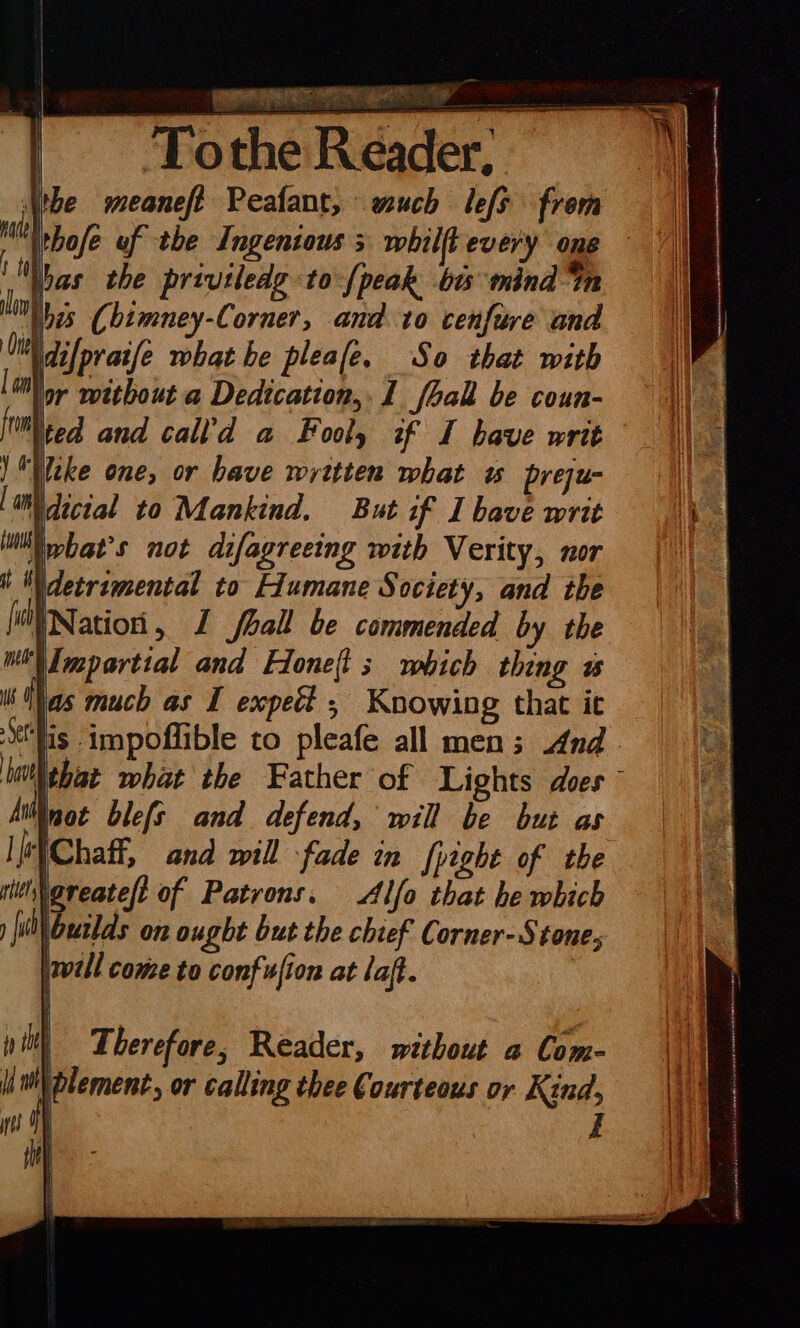 To the Reader.
the meaneſt Peaſant, much leſs from
thoſe of the Ingenious; whilſt every one
has the priviledg to ſpeak his mind in
his Chimney-Corner, and to cenſure and
diſpraiſe what he pleaſe. So that with
or without a Dedication, I ſhall be coun-
ted and call'd a Fool, if I have writ
like one, or have written what is preju-
dicial to Mankind. But if I have writ
what's not diſagreeing with Verity, nor
detrimental to Humane Society, and the
Nation, I ſhall be commended by the
Impartial and Honeſt; which thing is
as much as I expect; Knowing that it
is impoſſible to pleaſe all men; And
that what the Father of Lights does
not bleſs and defend, will be but as
Chaff, and will fade in ſpight of the
greateſt of Patrons. Alſo that he which
builds on ought but the chief Corner-Stone,
will come to confuſion at laſt.
Therefore, Reader, without a Com-
plement, or calling thee Courteous or Kind,
I